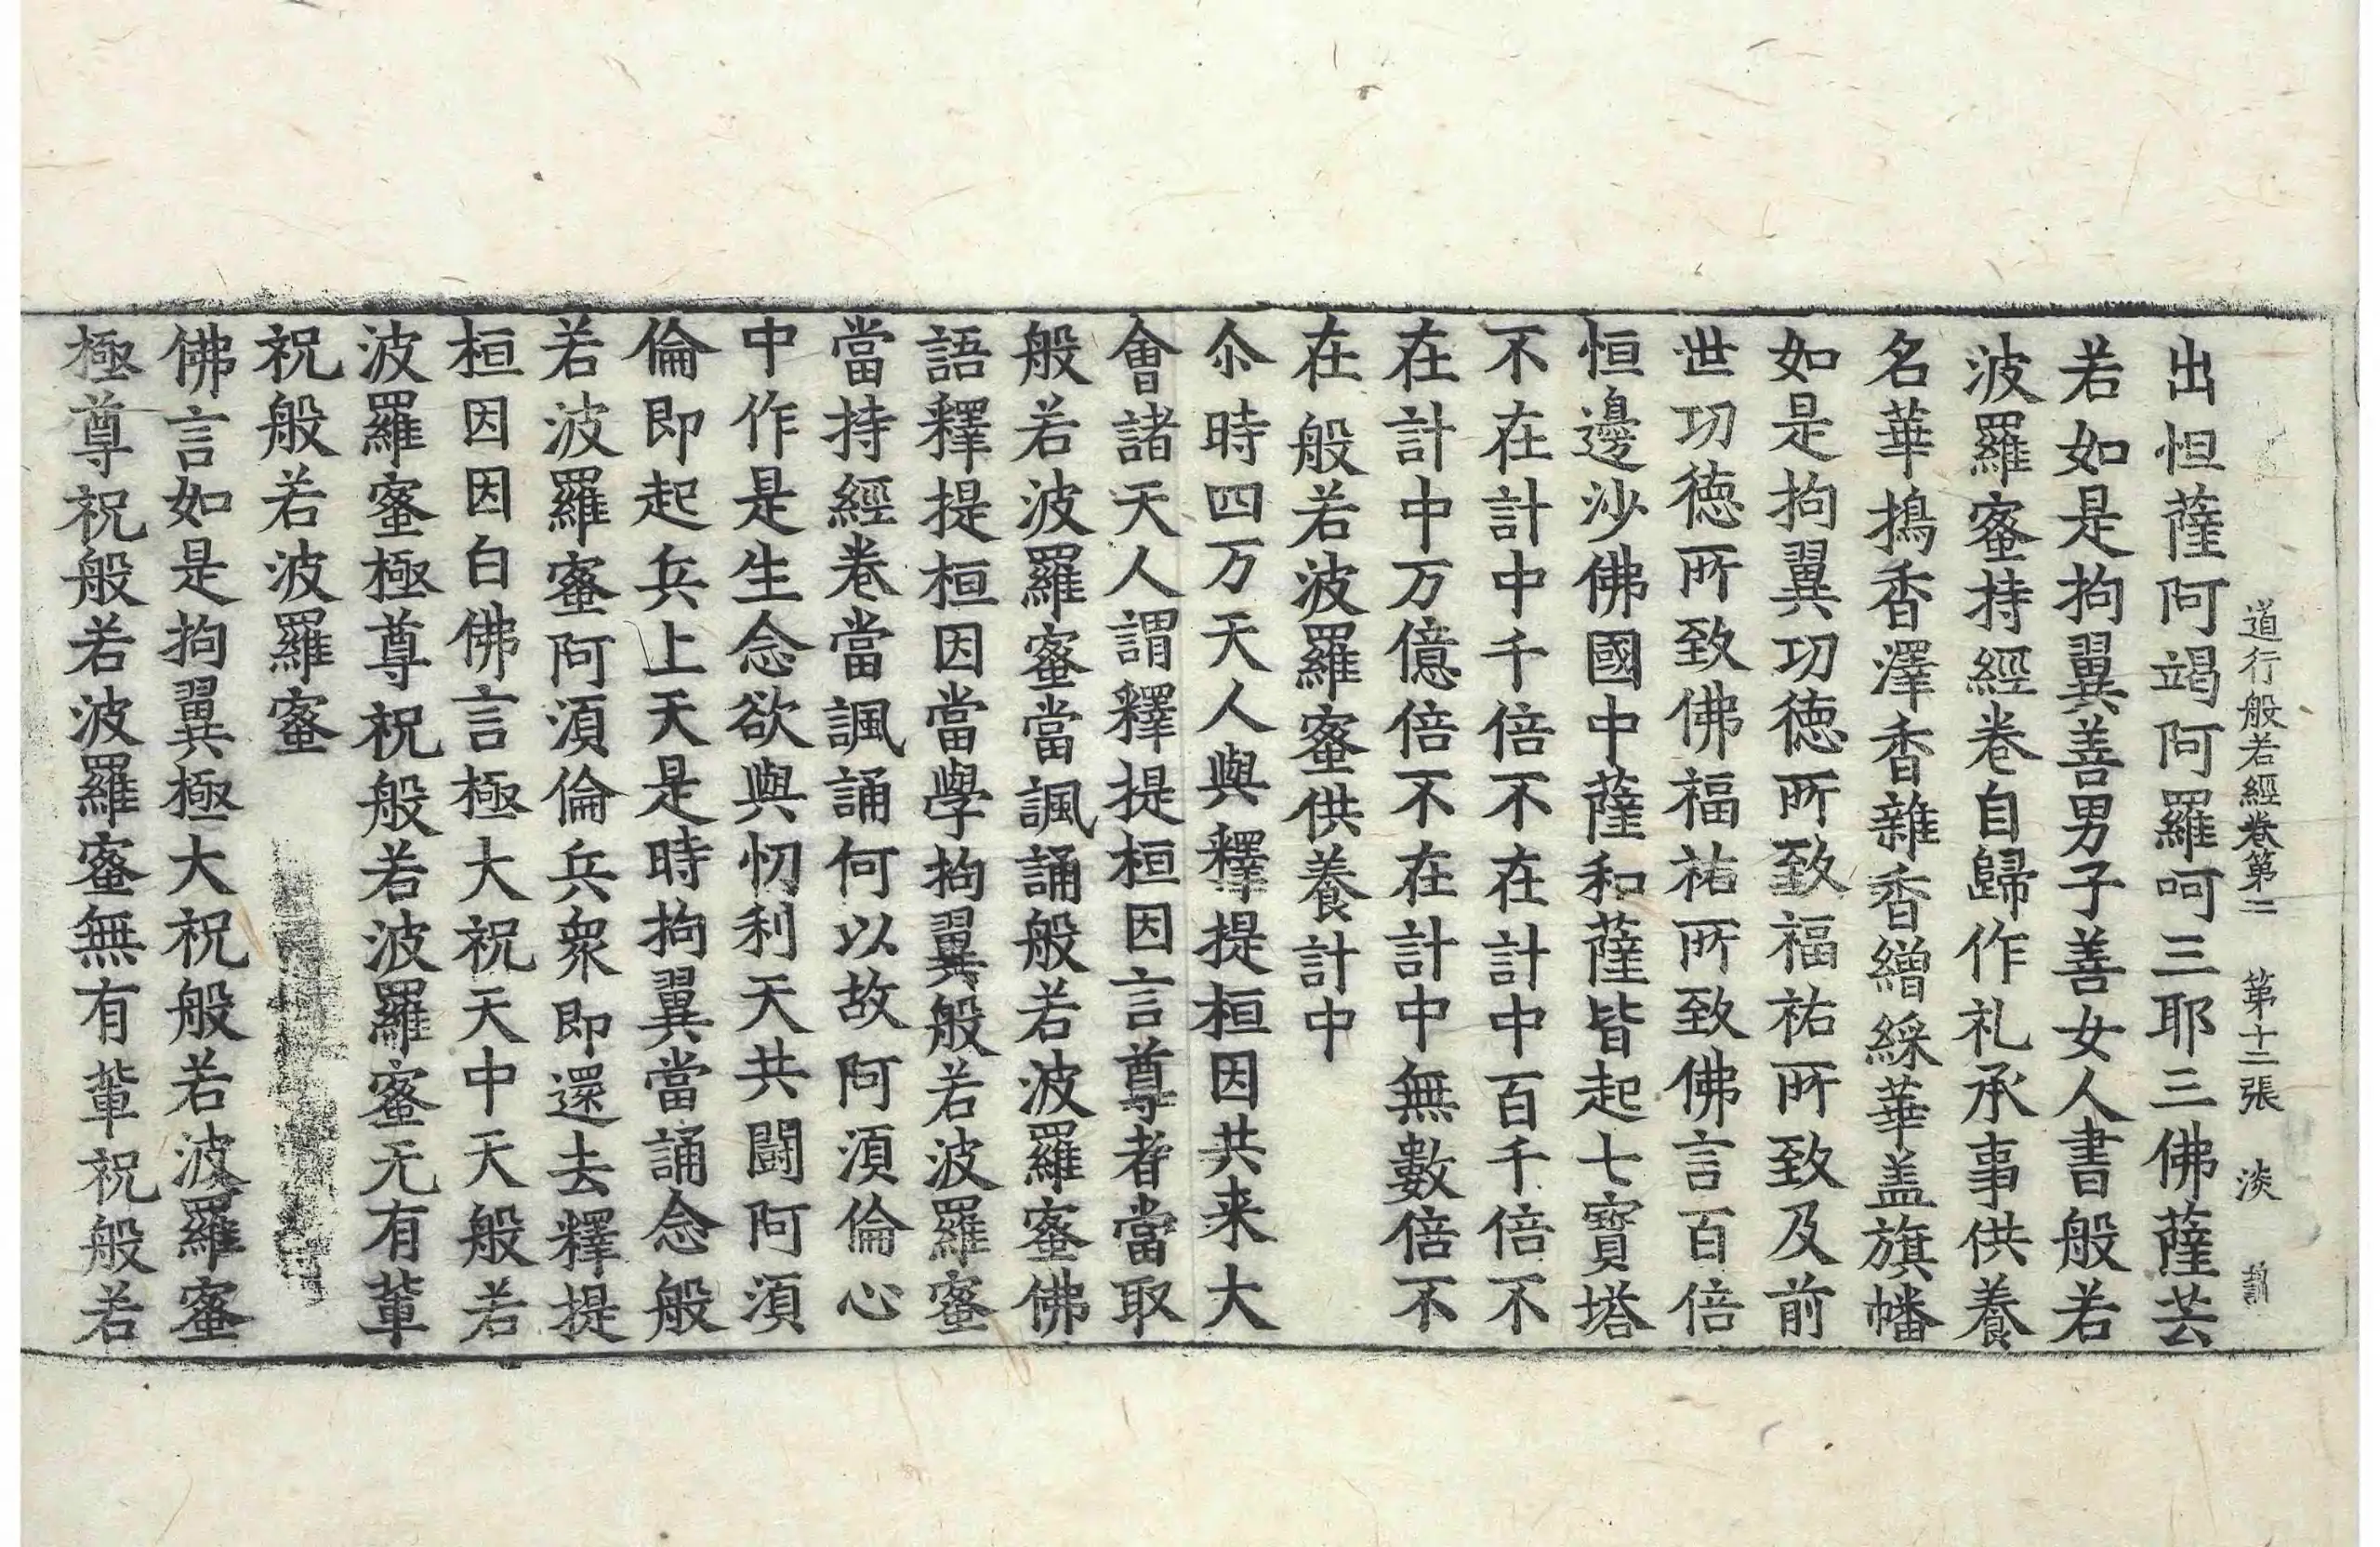 道行般若經卷第二 第十二張 淡
出怛薩阿竭阿羅呵三耶三佛薩芸
若如是拘翼善男子善女人書般若
波羅蜜持經卷自歸作礼承事供養
名華搗香澤香雜香繒綵華盖旗幡
如是拘翼功徳所致福祐所致及前
世功徳所致佛福祐所致佛言百倍
恒邊沙佛國中薩和薩皆起七寶塔
不在計中千倍不在計中百千倍不
在計中万億倍不在計中無數倍不
在般若波羅蜜供養計中
尒時四万天人與釋提桓因共来大
會諸天人謂釋提桓因言尊者當取
般若波羅蜜當諷誦般若波羅蜜佛
語釋提桓因當學拘翼般若波羅蜜
當持經卷當諷誦何以故阿湏倫心
中作是生念欲與忉利天共鬪阿湏
倫即起兵上天是時拘翼當誦念般
若波羅蜜阿湏倫兵衆即還去釋提
桓因因白佛言極大祝天中天般若
波羅蜜極尊祝般若波羅蜜无有軰
祝般若波羅蜜
佛言如是拘翼極大祝般若波羅蜜
極尊祝般若波羅蜜無有軰祝般若